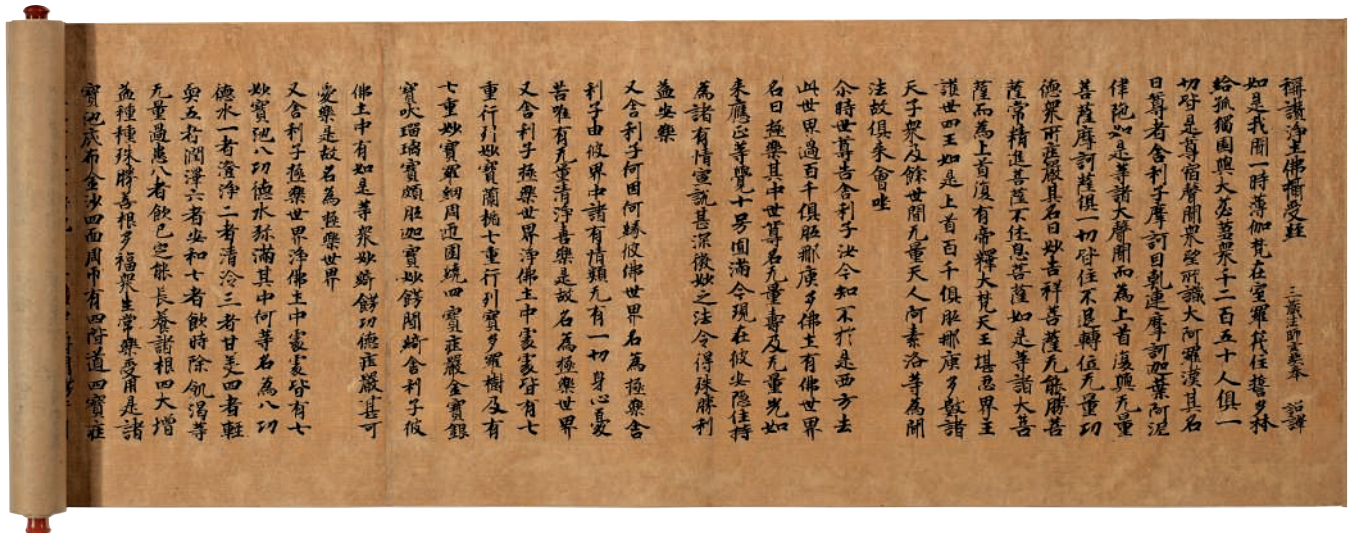 稱讚淨土佛攝受經 三藏法師玄奘奉 詔譯
如是我聞一時薄伽梵在室羅筏住誓多林
給孤獨園與大苾蒭衆千二百五十人俱一
切皆是尊宿聲聞衆望所識大阿羅漢其名
曰尊者舍利子摩訶目乹連摩訶迦葉阿泥
律陁如是等諸大聲聞而為上首復與无量
菩薩摩訶薩俱一切皆住不退轉位无量功
德衆所莊嚴其名曰妙吉祥菩薩无能勝菩
薩常精進菩薩不休息菩薩如是等諸大菩
薩而為上首復有帝釋大梵天王堪忍界主
護世四王如是上首百千俱胝那庾多數諸
天子衆及餘世間无量天人阿素洛等為聞
法故俱來會坐
尒時世尊告舍利子汝今知不於是西方去
此世界過百千俱胝那庾多佛土有佛世界
名曰極樂其中世尊名无量壽及无量光如
来應正等覺十号圓滿今現在彼安隱住持
為諸有情宣說甚深微妙之法令得殊勝利
益安樂
又舍利子何因何緣彼佛世界名為極樂舍
利子由彼界中諸有情類无有一切身心憂
苦唯有无量清淨喜樂是故名為極樂世界
又舍利子極樂世界淨佛土中處處皆有七
重行列妙寶蘭楯七重行列寶多羅樹及有
七重妙寶羅網周迊圍繞四寶莊嚴金寶銀
寶吠瑠璃寶頗胝迦寶妙飾間綺舍利子彼
佛土中有如是等衆妙綺飾功德莊嚴甚可
愛樂是故名為極樂世界
又舍利子極樂世界淨佛土中處處皆有七
妙寶池八功德水弥滿其中何等名為八功
德水一者澄淨二者清冷三者甘美四者輕
耎五者潤澤六者安和七者飲時除飢渴等
无量過患八者飲已定能長養諸根四大增
益種種殊勝善根多福衆生常樂受用是諸
寶池底布金沙四面周帀有四階道四寶莊